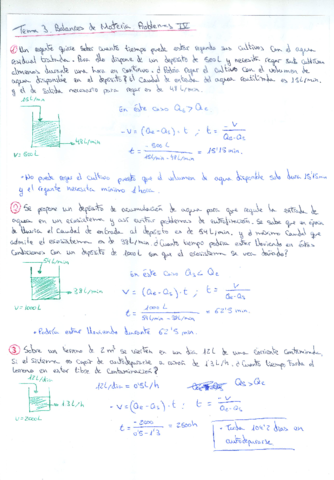 Tema 3. Balances de Materia Problemas IV
① Un regante quiere saber cuanto tiempo puede estar regando sus cultivos con el agua
residual tratada. Para ello dispone de un depósito de 500L y necesita regar sus cultivos
almenos durante una hora en continuo. ¿Podrá regar el cultivo con el volumen de
agua disponible en el depósito? El caudal de entrada del agua reutilizada es 15L/min
y el de salida necesario para regar es de 48L/min.
15L/min
En este caso Qs > Qe
-V = (Qe-Qs)·t ; t = -V / Qe-Qs
48L/min
t = -500L / 15L/min-48L/min = 15'15 min.
V = 500L
· No puede regar el cultivo puesto que el volumen de agua disponible solo dura 15'15min
y el regante necesita mínimo 1 hora.
② Se propone un depósito de acumulación de aguas para que regule la entrada de
aguas en un ecosistema y así evitar problemas de
Se sabe que en época
de lluvia el caudal de entrada al depósito es de 54L/min, y el máximo caudal que
admite el ecosistema es de 38L/min. ¿Cuanto tiempo podría estar lloviendo en estas
condiciones con un depósito de 1000L sin que el ecosistema se vea dañado?
54L/min
En este caso Qs < Qe
V = (Qe-Qs)·t ; t = V / Qe-Qs
38L/min
t = 1000L / 54L/min-38L/min = 62'5 min.
V = 1000L
· Podría estar lloviendo durante 62'5 min.
③ Sobre un terreno de 2m³ se vierten en un día 12L de una corriente contaminada.
Si el sistema es capaz de autodepurarse a razón de 1'3L/h. ¿Cuánto tiempo tarda el
terreno en estar libre de contaminación?
12L/día
12L/día = 0'5L/h
Qs > Qe
1'3L/h
-V = (Qe-Qs)·t ; t = -V / Qe-Qs
V = 2000L
t = -2000 / 0'5-1'3 = 2500h
· Tarda 104'2 días en
autodepurarse